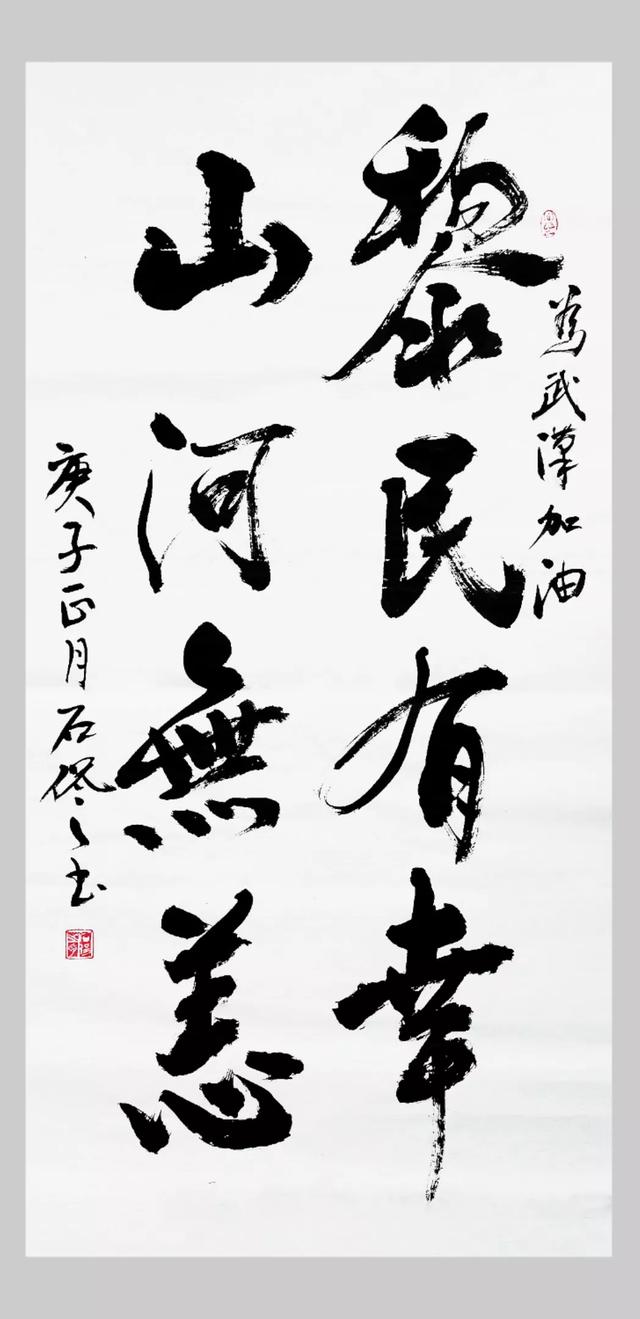 為武漢加油
黎民有幸
山河無恙
庚子正月石